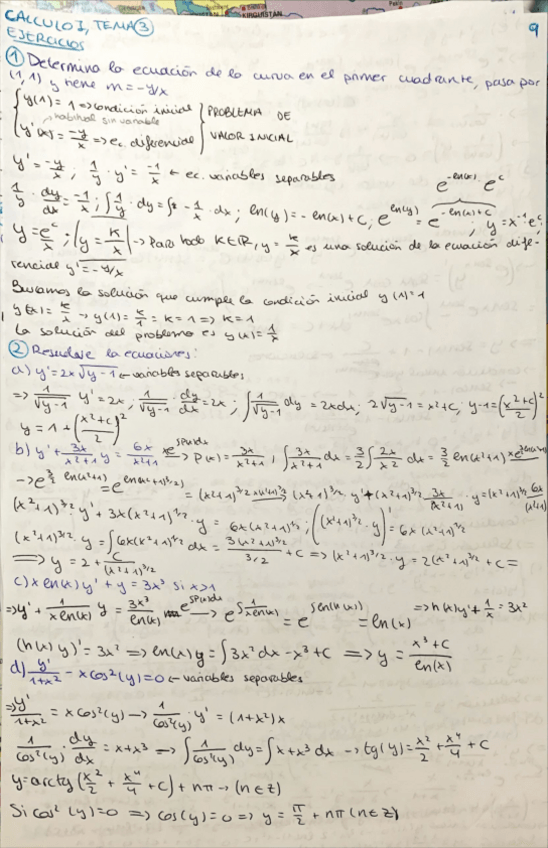 KIRGUISTÁN
CALCULO I, TEMA 3
9
EJERCICIOS
① Determina la ecuación de la curva en el primer cuadrante, pasa por
(1,1) y tiene m = -y/x
{ y(1) = 1 => condición inicial } PROBLEMA DE
habitual sin variable
{ y'(x) = -y/x => ec. diferencial } VALOR INICIAL
y' = -y/x ; 1/y · y' = -1/x ← ec. variables separables
e^(-ln(x)) · e^c
1/y · dy/dx = -1/x ; ∫ 1/y · dy = ∫ -1/x · dx ; ln(y) = -ln(x) + C ; e^(ln(y)) = e^(-ln(x)+c) ; y = x^(-1) · e^c ;
y = e^c/x ; y = K/x → Para todo K∈ℝ, y = K/x es una solución de la ecuación dife-
rencial y' = -y/x
Buscamos la solución que cumple la condición inicial y(1) = 1
y(x) = K/x → y(1) = K/1 = K = 1 => K = 1
La solución del problema es y(x) = 1/x
② Resuelve la ecuaciones:
a) y' = 2x √(y-1) ← variables separables
=> 1/√(y-1) y' = 2x ; 1/√(y-1) · dy/dx = 2x ; ∫ 1/√(y-1) dy = 2x dx ; 2√(y-1) = x²+C ; y-1 = ((x²+C)/2)²
y = 1 + ((x²+C)/2)²
b) y' + 3x/(x²+1) y = 6x/(x²+1) → P(x) = 3x/(x²+1) ; ∫ 3x/(x²+1) dx = 3/2 ∫ 2x/x² dx = 3/2 ln(x²+1)
→ e^(3/2 ln(x²+1)) = e^(ln(x²+1)^(3/2)) = (x²+1)^(3/2) (x²+1)^(3/2) · y' + (x²+1)^(3/2) 3x/(x²+1) · y = (x²+1)^(3/2) 6x/(x²+1)
(x²+1)^(3/2) · y' + 3x(x²+1)^(1/2) · y = 6x(x²+1)^(1/2) ; ((x²+1)^(3/2) · y)' = 6x(x²+1)^(1/2)
(x²+1)^(3/2) · y = ∫ 6x(x²+1)^(1/2) dx = 3(x²+1)^(3/2)/(3/2) + C => (x²+1)^(3/2) · y = 2(x²+1)^(3/2) + C =
=> y = 2 + C/(x²+1)^(3/2)
c) x ln(x) y' + y = 3x³ si x>1
=> y' + 1/(x ln(x)) y = 3x³/ln(x) e^(∫P(x)dx) → e^(∫ 1/(x ln(x))) = e^(ln(ln(x))) = ln(x) => ln(x) y' + 1/x = 3x²
(ln(x) y)' = 3x² => ln(x) y = ∫ 3x² dx - x³ + C => y = (x³ + C)/ln(x)
d) y'/(1+x²) - x cos²(y) = 0 ← variables separables
=> y'/(1+x²) = x cos²(y) → 1/cos²(y) · y' = (1+x²)x
1/cos²(y) · dy/dx = x + x³ → ∫ 1/cos²(y) dy = ∫ x + x³ dx → tg(y) = x²/2 + x⁴/4 + C
y = arctg(x²/2 + x⁴/4 + C) + nπ → (n∈ℤ)
Si cos²(y) = 0 => cos(y) = 0 => y = π/2 + nπ (n∈ℤ)